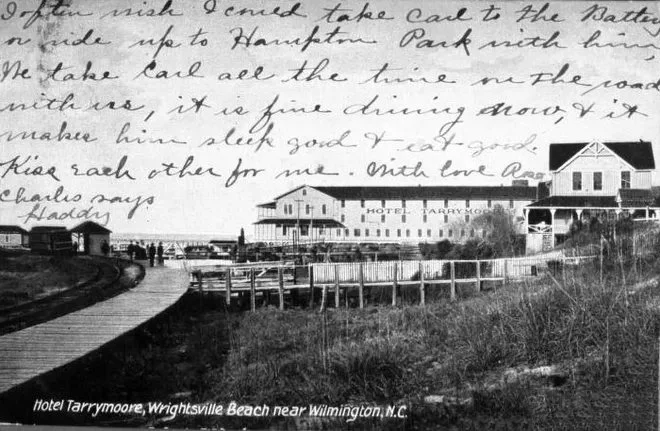 I often wish I could take Carl to the Battery
or ride up to Hampton Park with him,
We take Carl all the time on the road
with us, it is fine driving now, & it
makes him sleep good & eat good.
Kiss each other for me. With love
Charles says
Haddy
HOTEL TARRYMOORE
Hotel Tarrymoore, Wrightsville Beach near Wilmington, N.C.